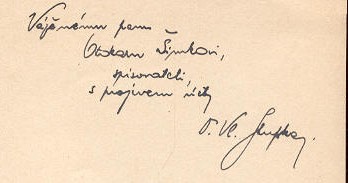 Váženému panu
Otokaru Šimkovi,
spisovateli,
s projevem úcty